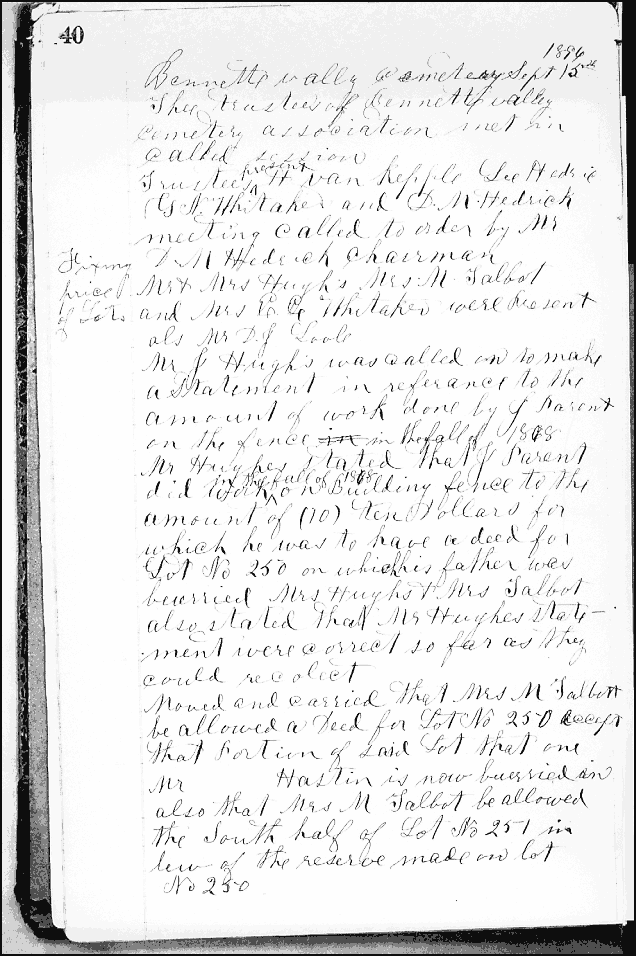 40
1896
Bennette vally cemetery Sept 15th
The trustees of Bennette valley
cemetery association met in
called session
present
Trustees ^ H van hepple Lee Hedric
G N Whitaker and D. M. Hedrick
meeting called to order by Mr
D M Hedrick chairman
Fixing
price
of Lots
Mr & Mrs Hugh's Mrs. M. Talbot
and Mrs E. G. Whitaker were Present
als Mr D J
Mr J Hugh's was called on to make
a Statement in referance to the
amount of work done by J Parent
on the fence in in the fall of 1868
Mr Hughes Stated that J Parent
in the fall of 1868
did work ^ on Building fence to the
amount of (10) ten Dollars for
which he was to have a deed for
Lot No 250 on which his father was
buerried Mrs Hughs & Mrs Talbot
also stated that Mr Hughes State-
ment were correct so far as they
could recolect
Moved and carried that Mrs M Talbott
be allowed a Deed for Lot No 250 except
that Portion of said Lot that one
Mr Hastin is now buerried in
also that Mrs M Talbot be allowed
the South half of Lot No 251 in
lew of the reserve made on lot
No 250